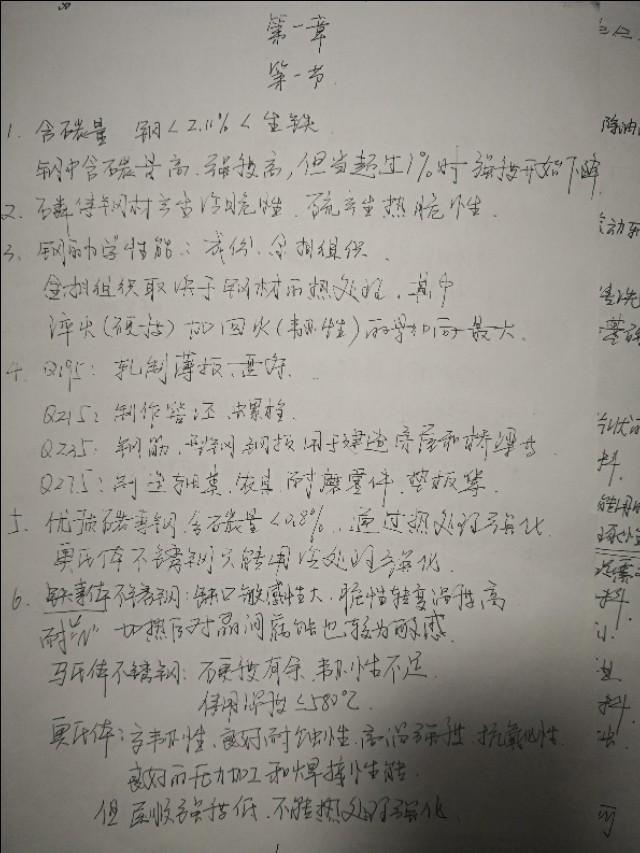 第一章
第一节
1. 含碳量 钢<2.11%<生铁
钢中含碳量高、强度高,但当超过1%时强度开始下降
2. 磷使钢材产生冷脆性、硫产生热脆性.
3. 钢的力学性能:成份、金相组织.
金相组织取决于钢材的热处理、其中
淬火(硬度)和回火(韧性)的影响最大.
4. Q195: 轧制薄板、
Q215: 制作管坯、螺栓
Q235: 钢筋、型钢 钢板 用于建造房屋和桥梁等
Q275: 制造轴类、农具、耐磨零件、垫板等.
5. 优质碳素钢、含碳量<0.8%、通过热处理强化
奥氏体不锈钢只能用冷处理强化.
6. 铁素体不锈钢:缺口敏感性大、脆性转变温度高
耐 加热后对晶间腐蚀也较为敏感.
马氏体不锈钢:硬度有余、韧性不足.
使用温度≤580℃.
奥氏体:高韧性、良好耐蚀性、高温强性、抗氧化性.
良好的压力加工和焊接性能.
但屈服强度低、不能热处理强化.
除油